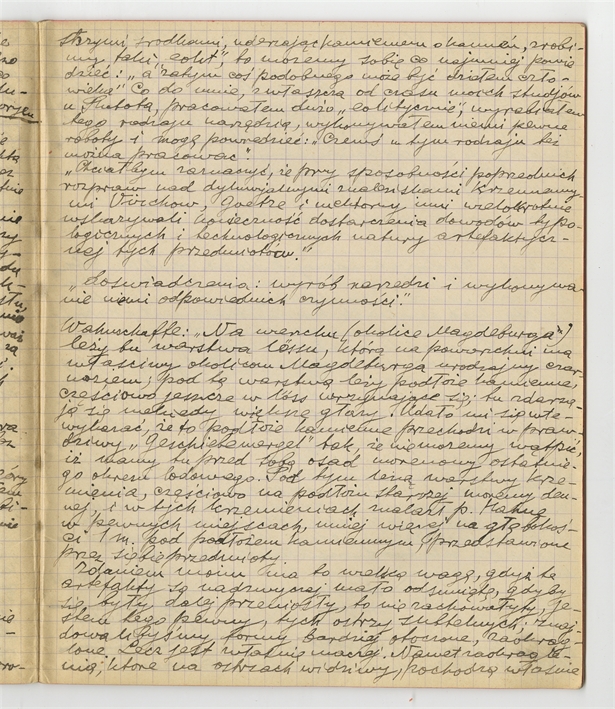 strzymi środkami, uderzając kamieniem o kamień, zrobi-
my taki „eolit”, to możemy sobie co najmniej powie
dzieć: „a zatym coś podobnego może być dziełem czło-
wieka” Co do mnie, zwłaszcza od czasu moich studjów
u Rutota, pracowałem dużo „eolitycznie”, wyrabiałem
tego rodzaju narzędzia, wykonywałem niemi pewne
roboty i mogę powiedzieć: „Czemś w tym rodzaju też
można pracować”.
„Chciałbym zaznaczyć, iż przy sposobności poprzednich
rozpraw nad dyluwjalnymi znaleziskami krzemienny-
mi Virchow, Goetze i niektórzy inni wielokrotnie
wskazywali konieczność dostarczenia dowodów typo-
logicznych i technologicznych natury artefaktycz-
nej tych przedmiotów.”
„doświadczenia: wyrób narzędzi i wykonywa-
nie niemi odpowiednich czynności.”
Wahnschaffe: „Na wierzchu (okolice Magdeburga)
leży tu warstwa lössu, która na powierzchni ma
właściwy okolicom Magdeburga urodzajny czar-
noziem; pod tą warstwą leży podłoże kamienne,
częściowo jeszcze w löss wrzynające się; tu zdarza-
ją się niekiedy większe głazy. Udało mi się wte-
wykazać, że to podłoże kamienne przechodzi w praw-
dziwy „Geschiebemergel” tak, że nie możemy wątpić,
iż mamy tu przed sobą osad morenowy ostatnie-
go okresu lodowego. Pod tym leżą warstwy krze-
mienia, częściowo na podłożu starszej moreny den-
nej, i w tych krzemieniach znalazł p. Hahne
w pewnych miejscach, mniej więcej na głębokoś-
ci 1 m. pod podłożem kamiennym, przedstawione
przez siebie przedmioty.
Zdaniem moim ma to wielką wagę, gdyż te
artefakty są nadzwyczaj mało odsunięte, gdyby
się były dalej przeniosły, to nie zachowałyby, je-
stem tego pewny, tych ostrzy subtelnych; znaj-
dowalibyśmy formy bardziej otoczone, zaokrąg-
lone. Lecz jest właśnie inaczej. Nawet zaokrągle-
nia, które na ostrzach widzimy, pochodzą właśnie